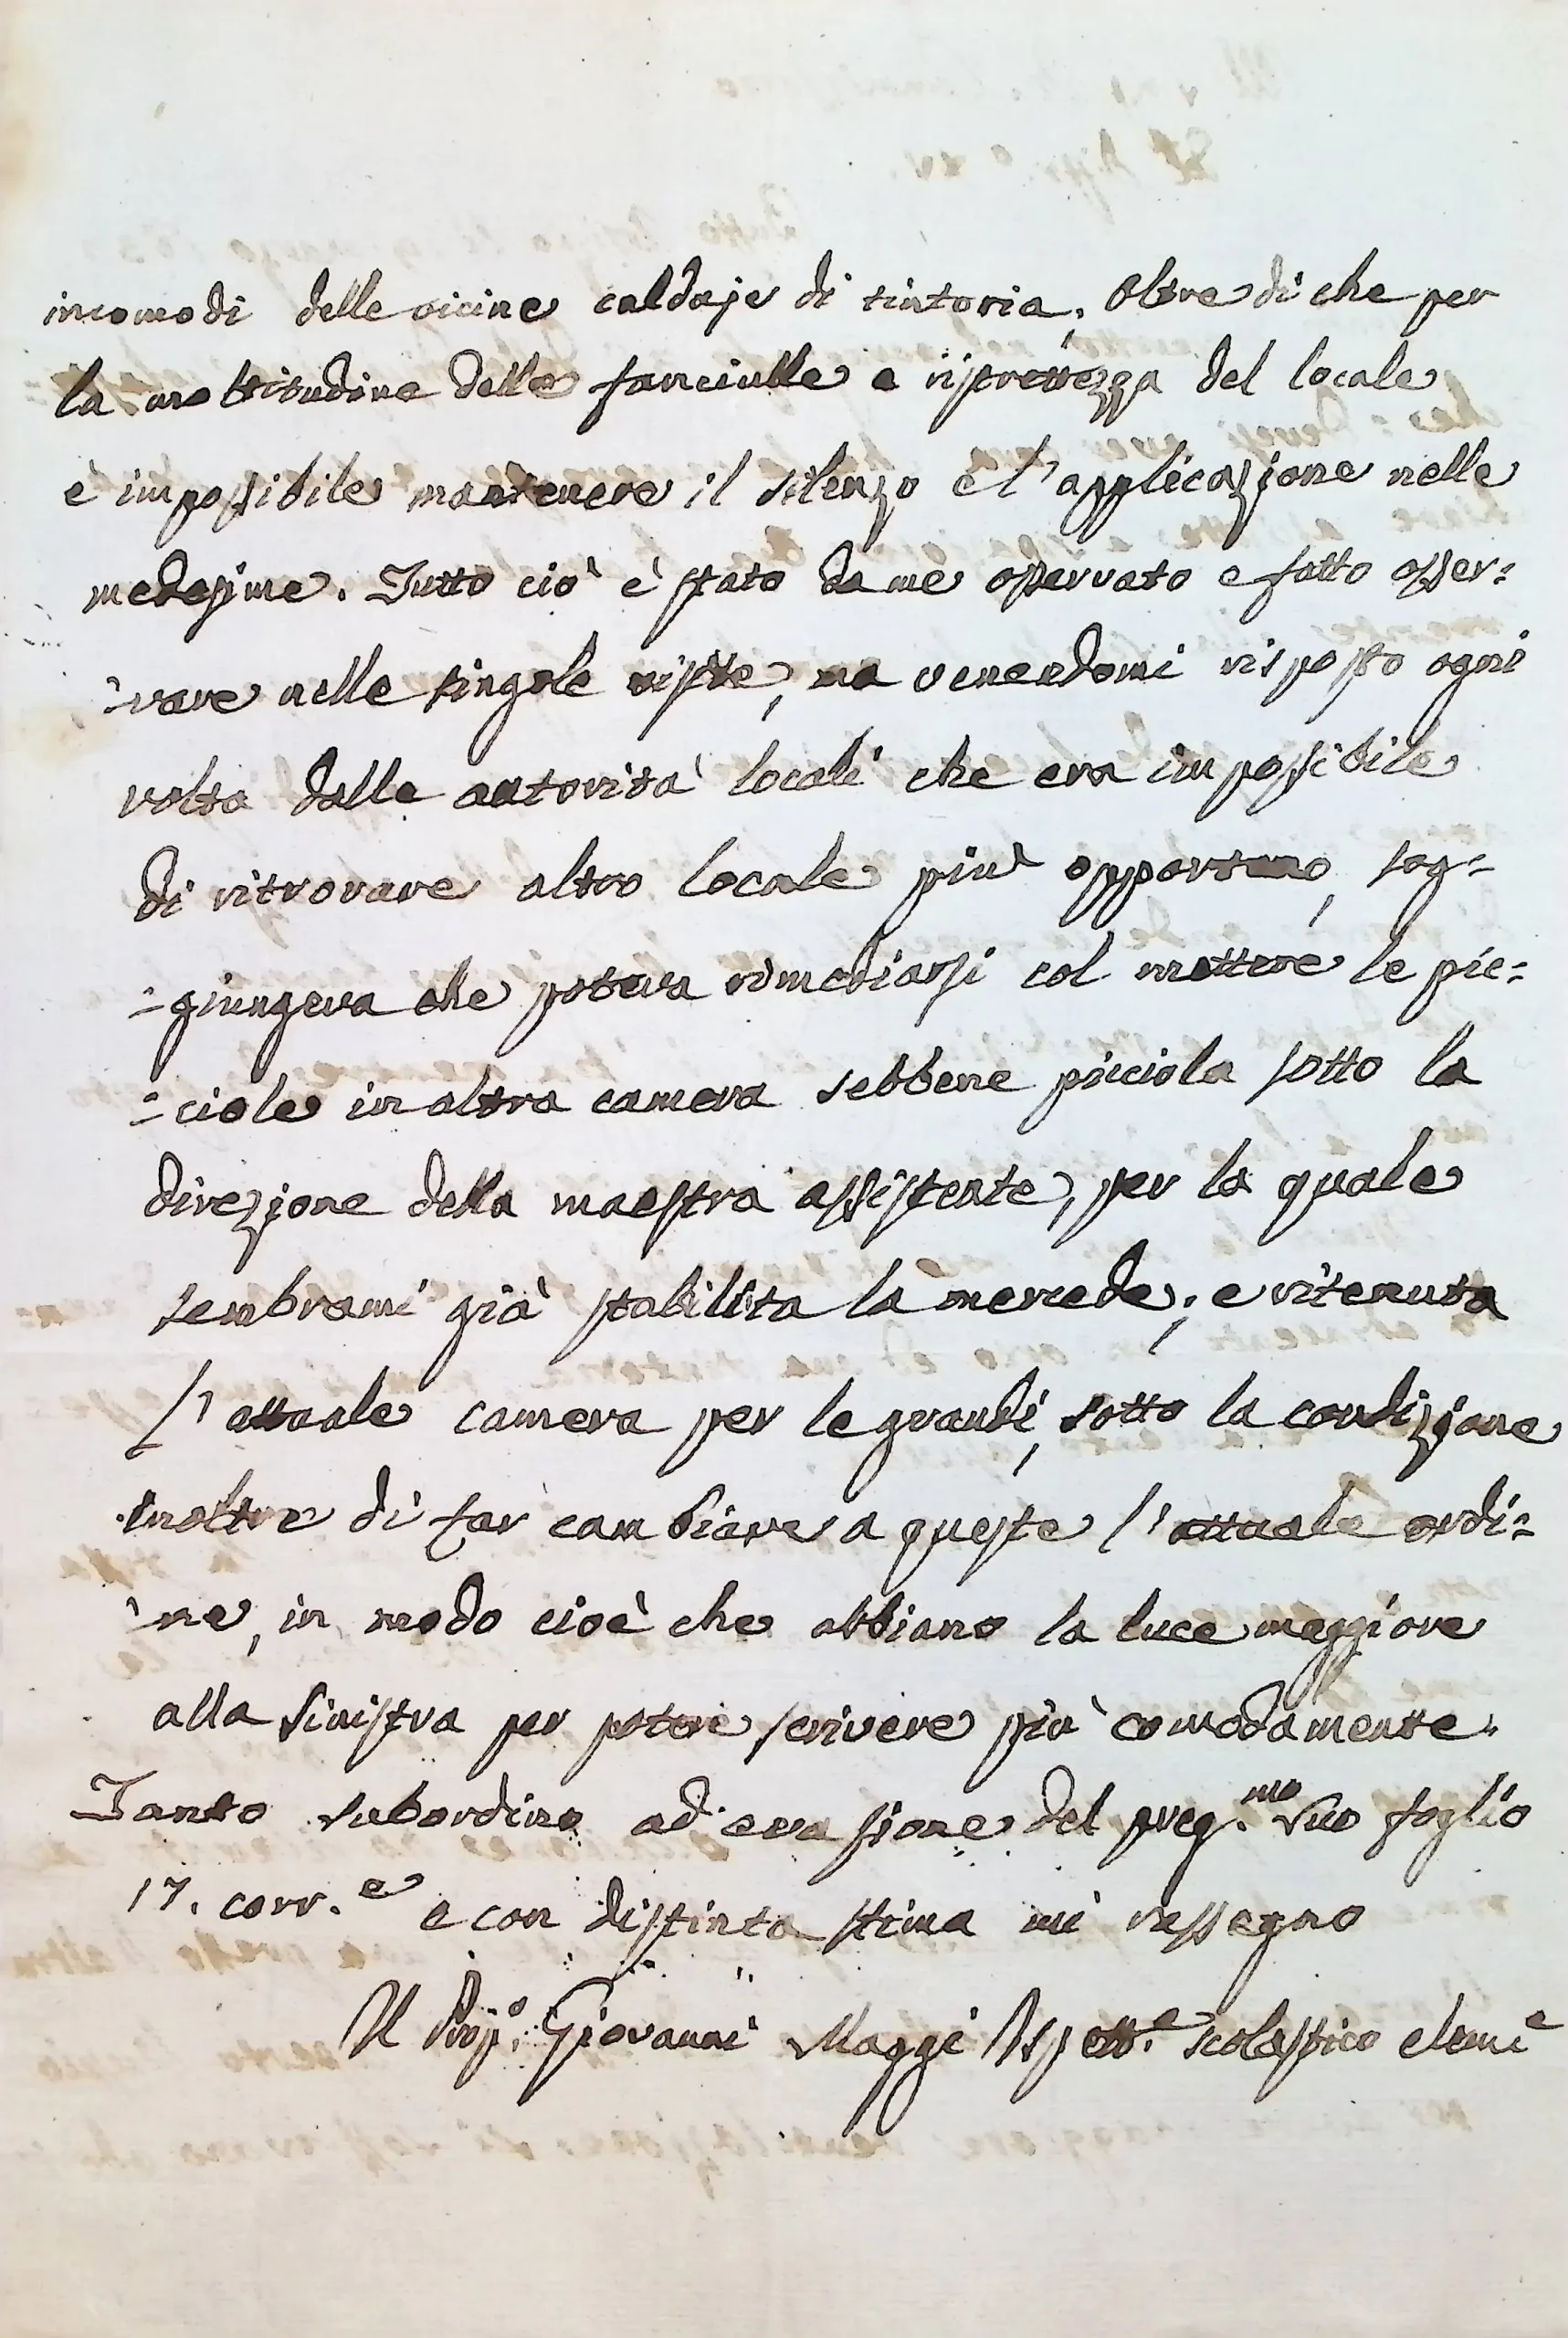 incomodi delle vicine caldaje di tintoria. Oltre di che per
la moltitudine delle fanciulle e ristrettezza del locale
è impossibile mantenere il silenzo e l'applicazione nelle
medesime. Tutto ciò è stato da me osservato e fatto osser=
=vare nelle singole visite, ma venendomi risposto ogni
volta dalle autorità locali che era impossibile
di ritrovare altro locale più opportuno, sog=
=giungeva che poteva rimediarsi col mettere le pic=
=ciole in altra camera sebbene picciola sotto la
direzione della maestra assistente, per la quale
sembrami già stabilita la mercede; e ritenuta
l'attuale camera per le grandi, sotto la condizione
inoltre di far cambiare a queste l'attuale ordi=
=ne, in modo cioè che abbiano la luce maggiore
alla sinistra per potere scrivere più comodamente.
Tanto subordino ad evasione del preg.mo suo foglio
17. corr.e e con distinta stima mi rassegno
Il Giovanni Maggi Ispett.e scolastico elem.e